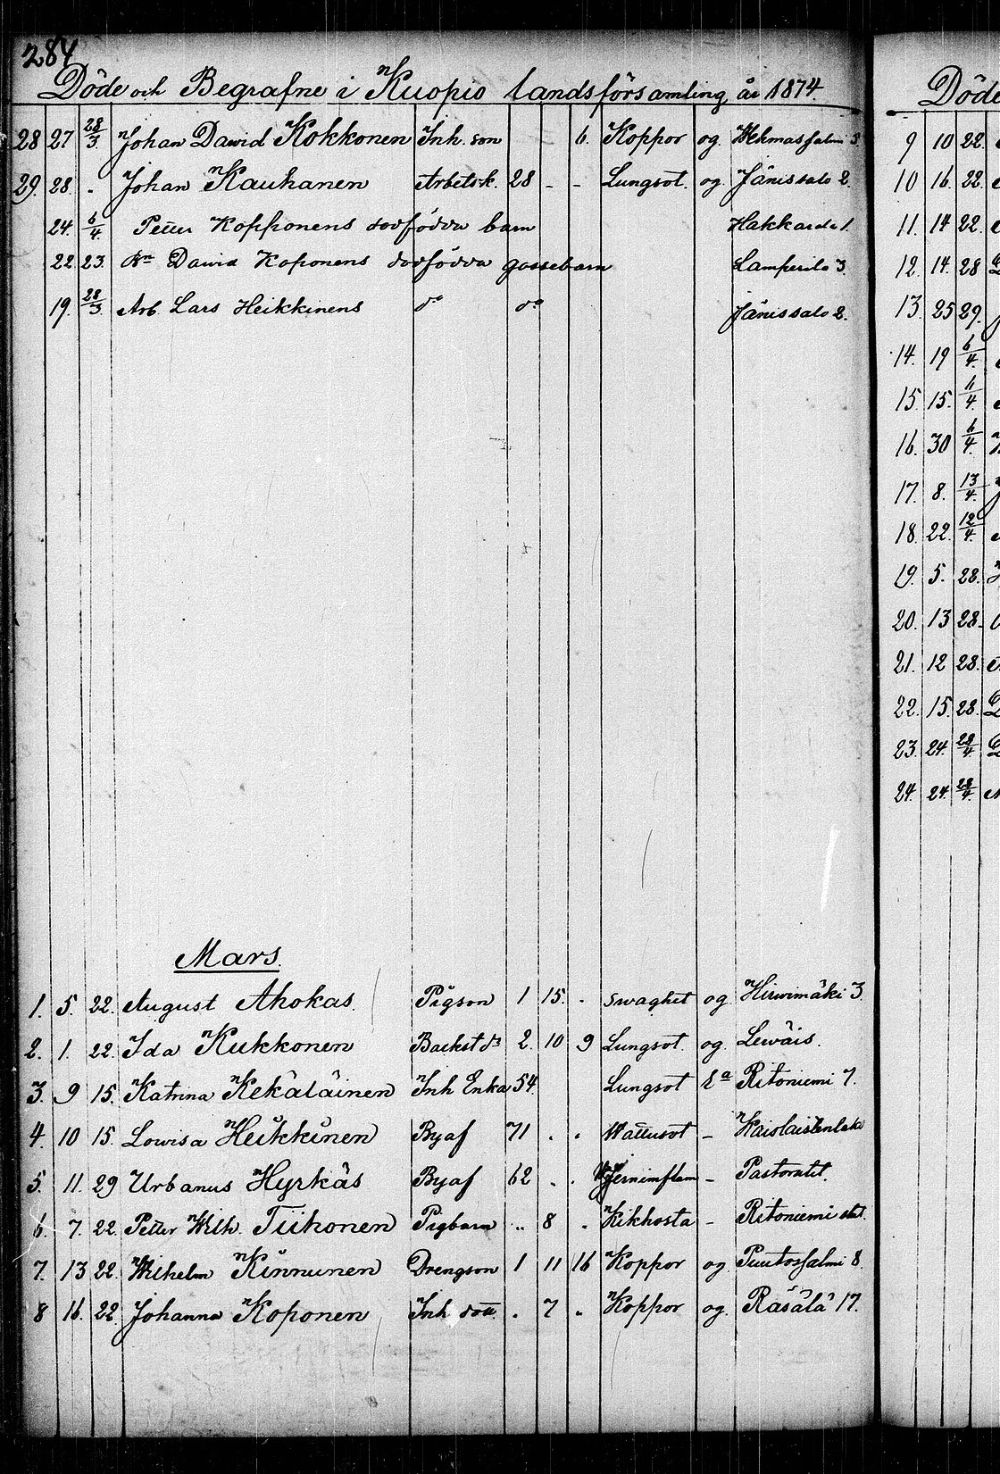 284
Döde och Begrafne i Kuopio landsförsamling år 1874.
28 27 28/3 Johan David Kokkonen Inh. son 6. Koppor og Wehmasjalmi 3.
29. 28 - Johan Kauhanen Arbetsk. 28 - - Lungsot. og Jänissalo 2.
24. 6/4 Petter Kopponens dödfödda barn
22. 23. Bn David Koponens dödfödda gossebarn Lamperila 3.
19. 28/3. Arb. Lars Heikkinens do do Jänissalo 2.
Mars.
1. 5. 22. August Ahokas Pigson 1 15. . Swaghet og Hirvimäki 3.
2. 1. 22. Ida Kukkonen Backst dr 2. 10 9 Lungsot. og. Lewäis.
3. 9 15. Katrina Kekäläinen Inh Enka 54. Lungsot Ritoniemi 7.
4. 10 15. Lowisa Heikkinen Byaf 71 . . Wattusot -
5. 11. 29 Urbanus Hyrkäs Byaf 62 . . - Pastoratet.
6. 7. 22. Petter Wilh. Tiikonen Pigbarn .. 8 . Kikhosta - Ritoniemi
7. 13 22. Wilhelm Kinnunen Drengson 1 11 16 Koppor og Puutosjalmi 8.
8 16. 22. Johanna Koponen Inh dott. . 7 . Koppor og. Räsälä 17.
Döde
9 10 22.
10 16. 22.
11. 14 22.
12. 14. 28
13. 25 29.
14. 19 6/4.
15. 15. 6/4.
16. 30 6/4.
17. 8. 13/4.
18. 22. 12/4.
19. 5. 28.
20. 13 28.
21. 12 28.
22. 15. 28.
23. 24. 28/4
24. 24. 28/4.